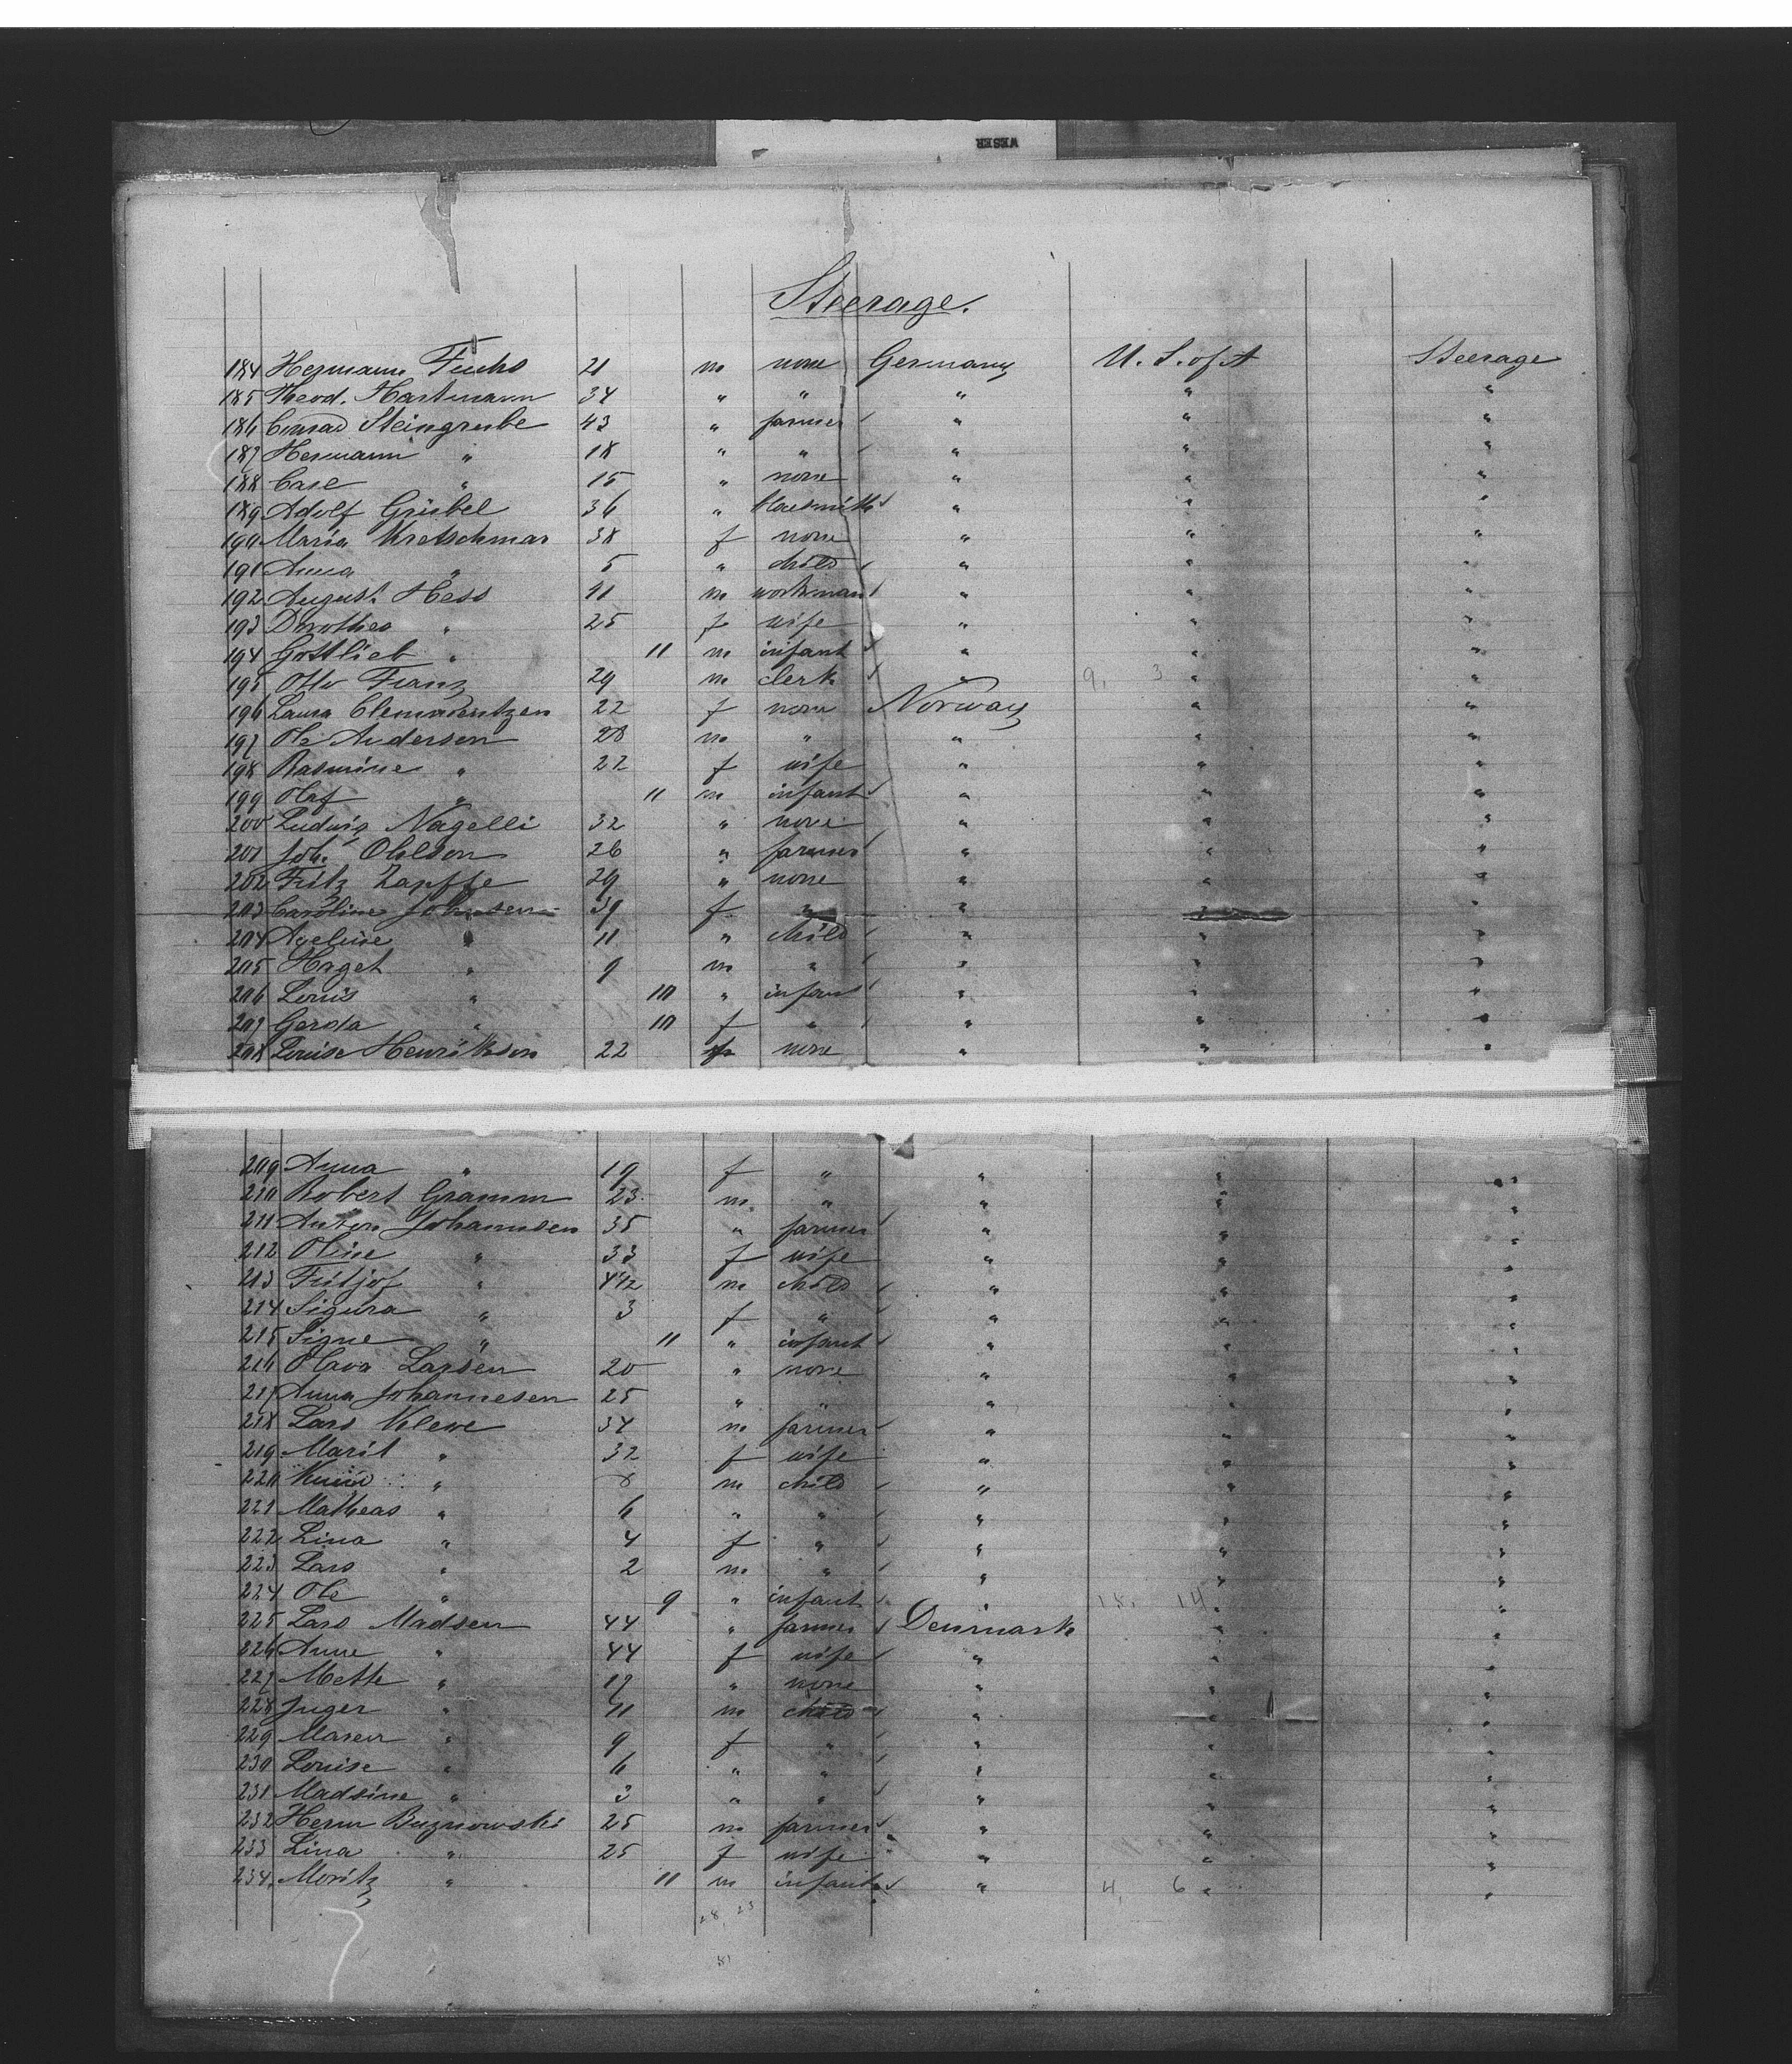 WESER
Steerage.
184 Hermann Fuchs 21 m none Germany U. S. of A Steerage
185 Theod. Hartmann 34 " " " " "
186 Conrad Steingrube 43 " farmer " " "
187 Hermann " 18 " " " " "
188 Carl " 15 " none " " "
189 Adolf Griebel 36 " " " "
190 Maria Kretschmar 38 f none " " "
191 Anna " 5 " child " " "
192 August Hess m workman " " "
193 Dorothea " 25 f wife " " "
194 Gottlieb " 11 m infant " " "
195 Otto Franz 29 m clerk " 9, 3 " "
196 Laura 22 f none Norway " "
197 Ole Anderson 28 m " " " "
198 Rasmine " 22 f wife " " "
199 Olaf " 11 m infant " " "
200 Ludwig Nagelli 32 " none " " "
201 Joh. Ohlson 26 " farmer " " "
202 Fritz Zapffe 29 " none " " "
203 Caroline Johnsen 39 f " " " "
204 " 11 " child " " "
205 Haget " 9 m " " " "
206 Louis " 10 " infant " " "
207 Gerda " 10 f " " " "
208 Louise Henrikson 22 f none " " "
209 Anna " 19 f " " " "
210 Robert Gramm 23 m " " " "
211 Anton Johannsen 35 " farmer " " "
212 Oline " 33 f wife " " "
213 Fritjof " 4 1/2 m child " " "
214 Sigura " 3 f " " " "
215 Signe " 11 " infant " " "
216 Olava Larsen 20 " none " " "
217 Anna Johannesen 25 " " " " "
218 Lars Klewe 34 m farmer " " "
219 Marit " 32 f wife " " "
220 " 8 m child " " "
221 Matheas " 6 " " " " "
222 Lina " 4 f " " " "
223 Lars " 2 m " " " "
224 Ole " 9 " infant " 15, 14 " "
225 Lars Madsen 44 " farmer Denmark " "
226 Anne " 44 f wife " " "
227 Mette " 17 " none " " "
228 Juger " 11 m child " " "
229 Maren " 9 f " " " "
230 Louise " 6 " " " " "
231 Madsine " 3 " " " " "
232 Herm Buznowski 25 m farmer " " "
233 Lina " 25 f wife " " "
234. Moritz " 11 m infant " 4, 6 " "
28, 23